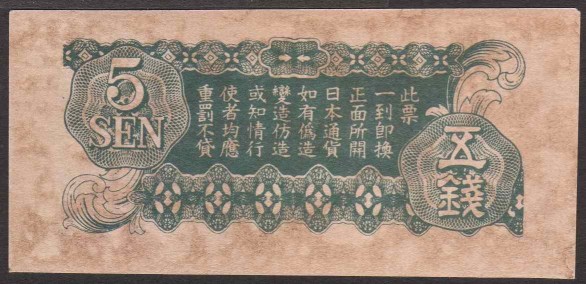 5
SEN
此票
一到即換
正面所開
日本通貨
如有僞造
變造仿造
或知情行
使者均應
重罰不貸
五
錢